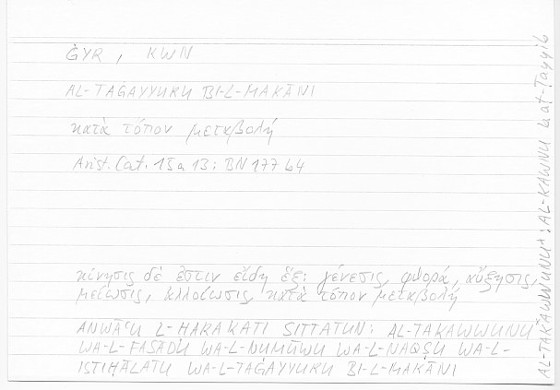 ĠYR, KWN
AL-TAĠAYYURU BI-L-MAKĀNI
κατὰ τόπον μεταβολή
Arist. Cat. 15a 13: BN 177 b4
κίνησις δέ ἐστιν εἴδη ἕξ: γένεσις, φθορά, αὔξησις,
μείωσις, ἀλλοίωσις, κατὰ τόπον μεταβολή
ANWĀʿU L-ḤARAKATI SITTATUN: AL-TAKAWWUNU^
WA-L-FASĀDU WA-L-NUMŪWU WA-L-NAQṢU WA-L-
ISTIḤĀLATU WA-L-TAĠAYYURU BI-L-MAKĀNI
AL-TAKAWWUNU^: AL-KAWNU aṭ-Ṭayyib